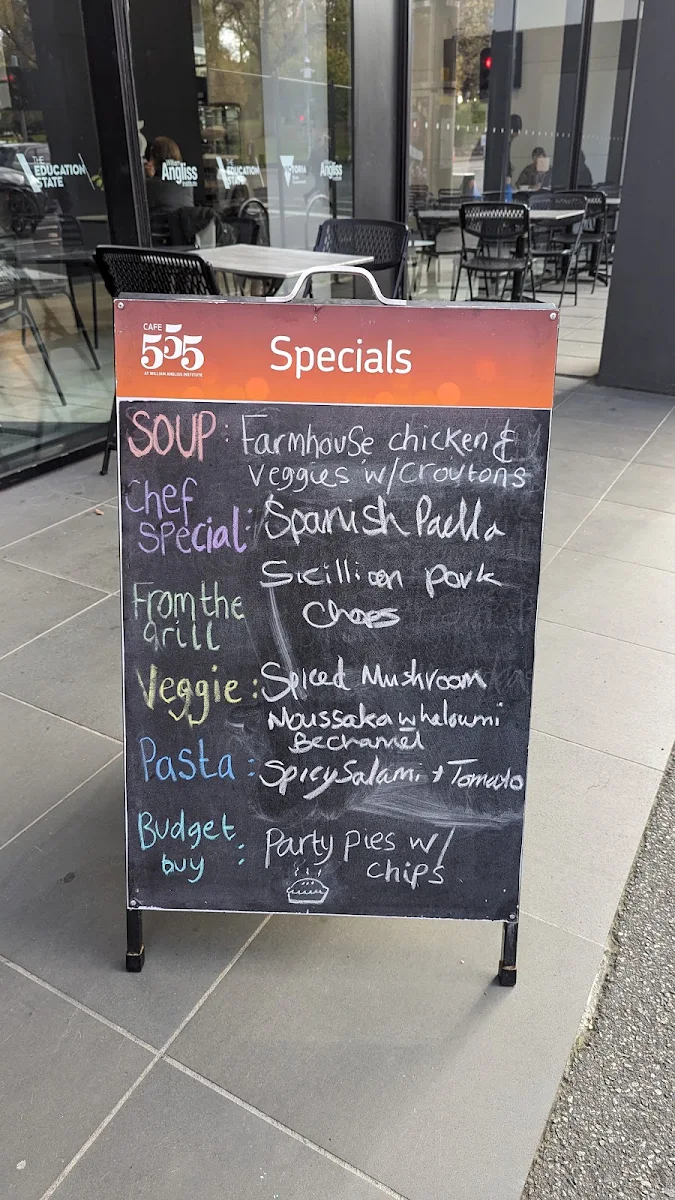 THE EDUCATION STATE
William Angliss Institute
THE EDUCATION STATE
VICTORIA
Angliss
CAFE
555
AT WILLIAM ANGLISS INSTITUTE
Specials
SOUP: Farmhouse chicken &
veggies w/croutons
Chef special: Spanish Paella
From the grill Sicillian pork
Chops
Veggie: Spiced Mushroom
Moussaka w haloumi
Bechamel
Pasta: Spicy Salami + Tomato
Budget buy: Party pies w/
chips